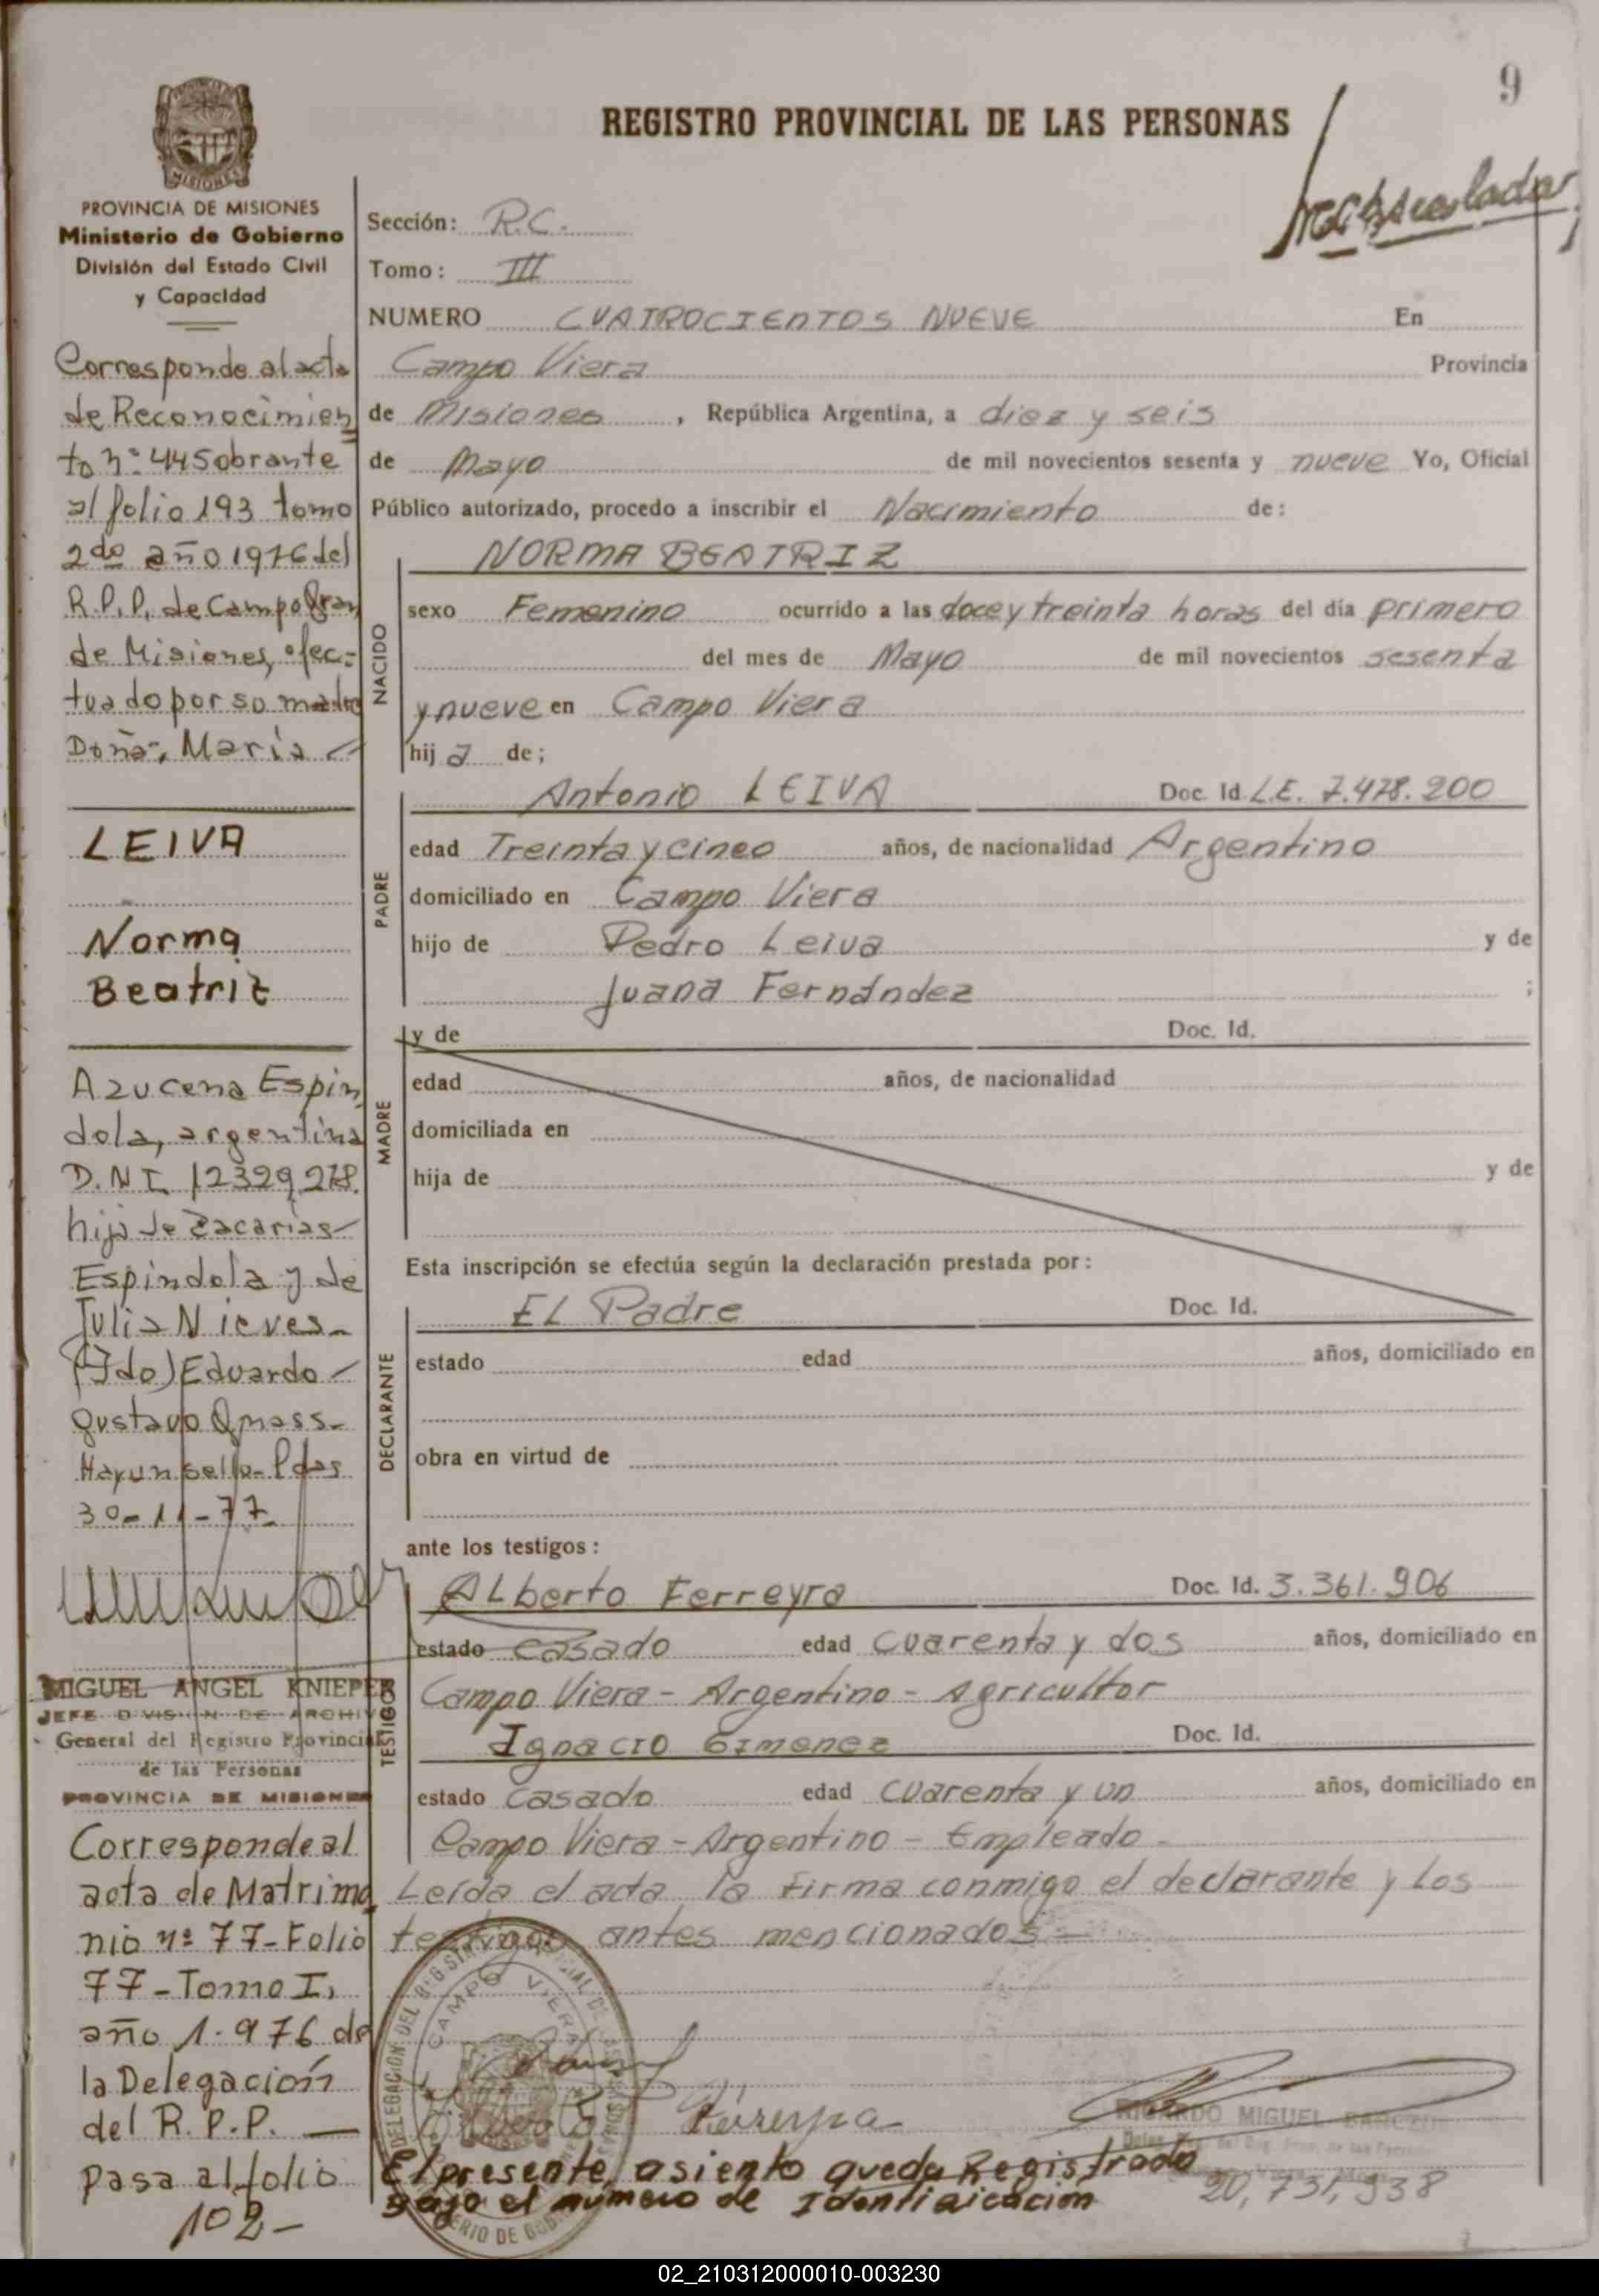 9
REGISTRO PROVINCIAL DE LAS PERSONAS
MISIONES
PROVINCIA DE MISIONES
Ministerio de Gobierno
División del Estado Civil
y Capacidad
Corresponde al acta
de Reconocimien
to nº 445 obrante
al folio 193 tomo
2do año 1976 del
R.P.P. de Campo Gran
de Misiones, efec-
tuado por su madre
Doña, María
LEIVA
Norma
Beatriz
Azucena Espin
dola, argentina
D.N.I. 12329278.
hija de Zacarias
Espindola y de
Julia Nieves-
(Fdo) Eduardo
Gustavo
Hay un sello- Pdas
30-11-77
MIGUEL ANGEL KNIEPER
JEFE DIVISION DE ARCHIVO
General del Registro Provincial
de las Personas
PROVINCIA DE MISIONES
Corresponde al
acta de Matrimo
nio nº 77-Folio
77-Tomo I,
año 1.976 de
la Delegación
del R.P.P. —
pasa al folio
102-
Sección: R.C.
Tomo: III
NUMERO CUATROCIENTOS NUEVE En
Campo Viera Provincia
de Misiones, República Argentina, a diez y seis
de Mayo de mil novecientos sesenta y nueve Yo, Oficial
Público autorizado, procedo a inscribir el Nacimiento de:
NORMA BEATRIZ
NACIDO
sexo Femenino ocurrido a las doce y treinta horas del día primero
del mes de Mayo de mil novecientos sesenta
y nueve en Campo Viera
hija de;
PADRE
Antonio LEIVA Doc. Id. L.E. 7.478.200
edad Treinta y cinco años, de nacionalidad Argentino
domiciliado en Campo Viera
hijo de Pedro Leiva y de
Juana Fernández ;
MADRE
y de Doc. Id.
edad años, de nacionalidad
domiciliada en
hija de y de
Esta inscripción se efectúa según la declaración prestada por:
DECLARANTE
EL Padre Doc. Id.
estado edad años, domiciliado en
obra en virtud de
ante los testigos:
TESTIGOS
Alberto Ferreyra Doc. Id. 3.361.906
estado casado edad cuarenta y dos años, domiciliado en
Campo Viera - Argentino - Agricultor
Ignacio Gimenez Doc. Id.
estado casado edad cuarenta y un años, domiciliado en
Campo Viera - Argentino - Empleado.
Leída el acta la firma conmigo el declarante y los
testigos antes mencionados=
DELEGACION DEL REGISTRO
CAMPO VIERA
RICARDO MIGUEL
El presente asiento queda Registrado
bajo el número de Identificación 20,731,938
02_210312000010-003230